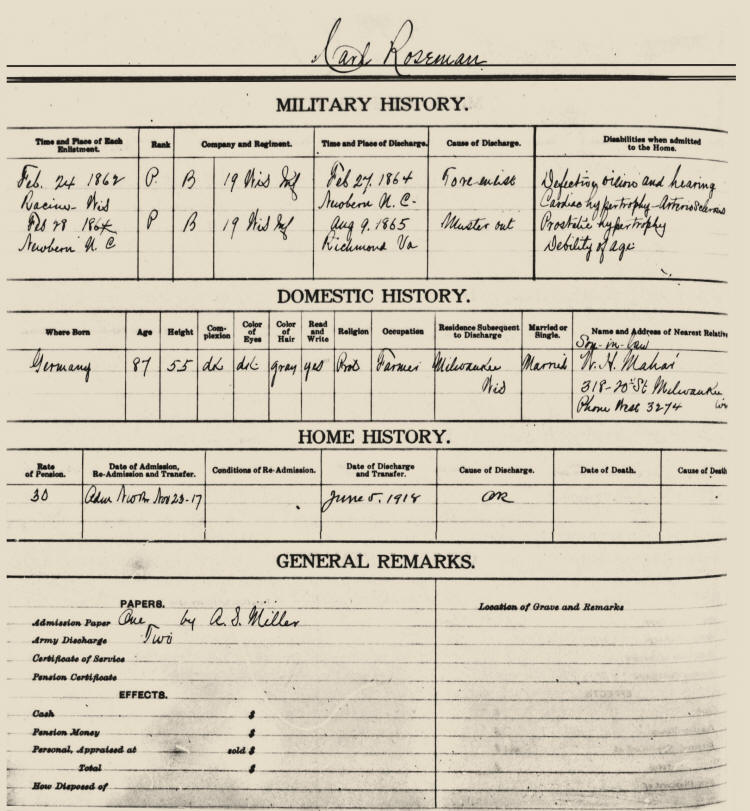 Carl Roseman
MILITARY HISTORY.
Time and Place of Each Enlistment. Rank Company and Regiment. Time and Place of Discharge. Cause of Discharge. Disabilities when admitted to the Home.
Feb. 24 1862 P. B 19 Wis Inf Feb 27. 1864 To re-enlist Defective vision and hearing
Racine Wis Newbern N. C. Cardiac hypertrophy - Arteriosclerosis
Feb 28 1864 P B 19 Wis Inf Aug 9. 1865 Muster out Prostatic hypertrophy
Newbern N. C Richmond Va Debility of age
DOMESTIC HISTORY.
Where Born Age Height Complexion Color of Eyes Color of Hair Read and Write Religion Occupation Residence Subsequent to Discharge Married or Single. Name and Address of Nearest Relative
Son-in-law
Germany 87 5 5 dk dk gray yes Prot Farmer Milwaukee Married W. H. Mahar
Wis 318-20th St Milwaukee
Phone West 3274 Wis
HOME HISTORY.
Rate of Pension. Date of Admission, Re-Admission and Transfer. Conditions of Re-Admission. Date of Discharge and Transfer. Cause of Discharge. Date of Death. Cause of Death
30 Adm N.W.Br. Nov 23-17 June 5. 1918 OR
GENERAL REMARKS.
PAPERS.
Location of Grave and Remarks
Admission Paper One by A. S. Miller
Army Discharge Two
Certificate of Service
Pension Certificate
EFFECTS.
Cash $
Pension Money $
Personal, Appraised at sold $
Total $
How Disposed of